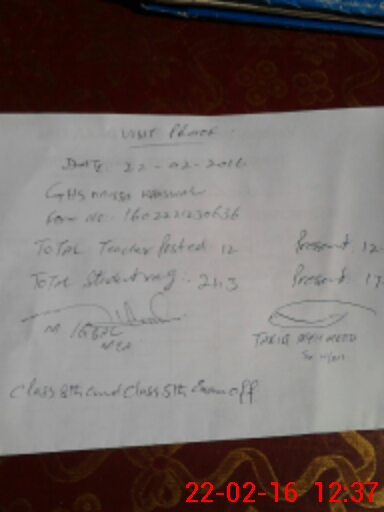 VISIT PROOF
DATE. 22-02-2016
GHS
Form No. 1602221230636
ToTAL Teacher Posted. 12 Present. 12
ToTAL Student 243 Present. 17
M. IQBAL
TARIQ MEHMOOD
Class 8th and Class 5th Exam off
22-02-16 12:37